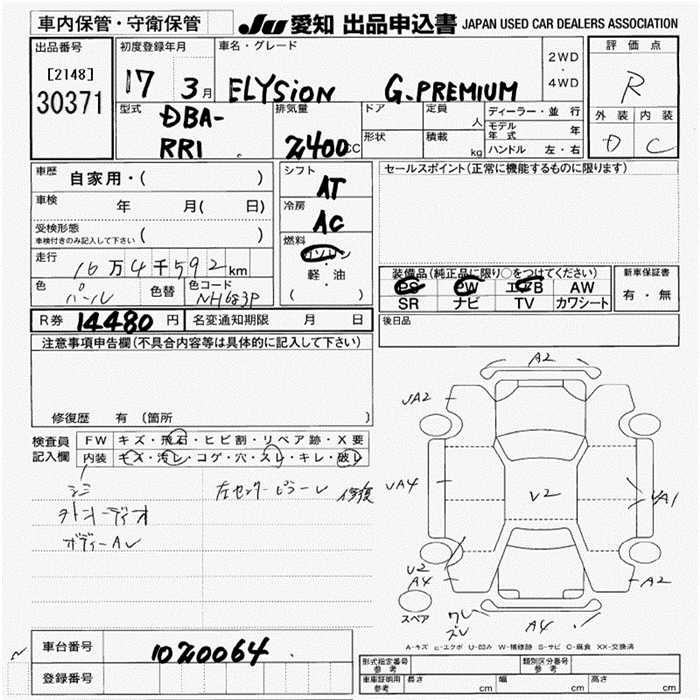 車内保管・守衛保管
JU 愛知 出品申込書 JAPAN USED CAR DEALERS ASSOCIATION
出品番号 初度登録年月 車名・グレード 2WD ・ 4WD 評価点
[2148]
30371
17 3月 ELYSION G.PREMIUM R
型式 排気量 ドア 定員 人 ディーラー・並行 外装 内装
DBA-
RR1 2400CC 形状 積載 kg モデル年式 年 D C
ハンドル 左・右
車歴 自家用・( ) シフト AT セールスポイント(正常に機能するものに限ります)
車検 年 月( 日) 冷房 AC
受検形態
車検付きのみ記入して下さい ( ) 燃料 ガソリン
走行 16万4千592km ・ 装備品(純正品に限り○をつけてください) 新車保証書
色 パール 色替 色コード NH683P 軽・油 PS PW エアB AW 有・無
( ) SR ナビ TV カワシート
R券 14480円 名変通知期限 月 日 後日品
注意事項申告欄(不具合内容等は具体的に記入して下さい)
修復歴 有(箇所 )
検査員 FW キズ・飛石・ヒビ割・リペア跡・X要
記入欄 内装 キズ・汚レ・コゲ・穴・スレ・キレ・破レ
左センターピラーレ 修復
A2
UA2
UA4 V2 UA1
U2
A4 A2
スペア ワレ
スレ A4
A-キズ E-エクボ U-凹み W-補修跡 S-サビ C-腐食 XX-交換済
車台番号 1020064
登録番号
形式指定番号 参考 類別区分番号 参考
車庫証明用 参考 長さ cm 幅 cm 高さ cm